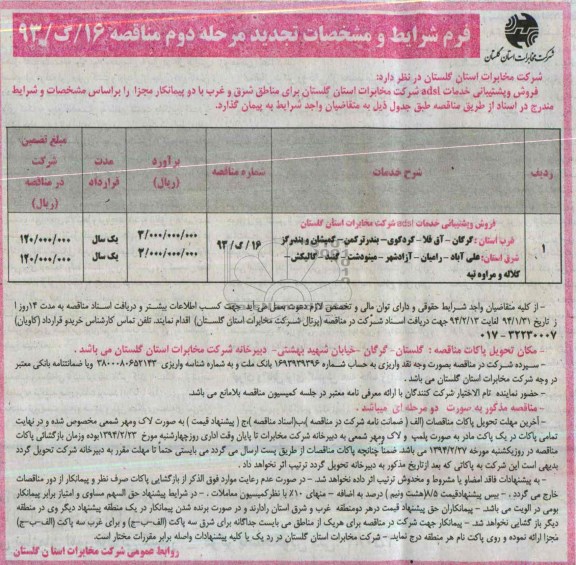 فرم شرایط و مشخصات تجدید مرحله دوم مناقصه ۱۶/گ/۹۳
شرکت مخابرات استان گلستان
شرکت مخابرات استان گلستان در نظر دارد:
فروش وپشتیبانی خدمات adsl شرکت مخابرات استان گلستان برای مناطق شرق و غرب با دو پیمانکار مجزا را براساس مشخصات و شرایط
مندرج در اسناد از طریق مناقصه طبق جدول ذیل به متقاضیان واجد شرایط به پیمان گذارد.
ردیف
شرح خدمات
شماره مناقصه
برآورد (ریال)
مدت قرارداد
مبلغ تضمین شرکت در مناقصه (ریال)
۱
فروش وپشتیبانی خدمات adsl شرکت مخابرات استان گلستان
غرب استان: گرگان- آق قلا- کردکوی- بندرترکمن- کمیشان و بندرگز
شرق استان: علی آباد- رامیان- آزادشهر- مینودشت- گنبد- گالیکش-
کلاله و مراوه تپه
۱۶/گ/۹۳
۳/۰۰۰/۰۰۰/۰۰۰
۳/۰۰۰/۰۰۰/۰۰۰
یک سال
یک سال
۱۲۰/۰۰۰/۰۰۰
۱۲۰/۰۰۰/۰۰۰
- از کلیه متقاضیان واجد شرایط حقوقی و دارای توان مالی و تخصص لازم دعوت بعمل می آید جهت کسب اطلاعات بیشتر و دریافت اسناد مناقصه به مدت ۱۴روز ا
ز تاریخ ۹۴/۱/۳۱ لغایت ۹۴/۲/۱۳ جهت دریافت اسناد شرکت در مناقصه (پرتال شرکت مخابرات استان گلستان) اقدام نمایند. تلفن تماس کارشناس خریدو قرارداد (کاویان)
۰۱۷-۳۲۲۳۰۰۰۷
- مکان تحویل پاکات مناقصه: گلستان- گرگان -خیابان شهید بهشتی- دبیرخانه شرکت مخابرات استان گلستان می باشد.
- سپرده شرکت در مناقصه بصورت وجه نقد واریزی به حساب شماره ۱۶۹۳۹۳۹۳۹۶ بانک ملت و به شماره شناسه واریزی ۳۸۰۰۰۸۰۶۵۲۱۴۳ ویا ضمانتنامه بانکی معتبر
در وجه شرکت مخابرات استان گلستان می باشد.
- حضور نماینده تام الاختیار شرکت کنندگان با ارائه معرفی نامه معتبر در جلسه کمیسیون مناقصه بلامانع می باشد.
- مناقصه مذکور به صورت دو مرحله ای میباشد.
- آخرین مهلت تحویل پاکات مناقصات (الف (ضمانت نامه شرکت در مناقصه)ب(اسناد مناقصه)ج (پیشنهاد قیمت) به صورت لاک ومهر شمعی مخصوص شده و در نهایت
تمامی پاکات در یک پاکت مادر به صورت پلمپ و لاک ومهر شمعی به دبیرخانه شرکت مخابرات تا پایان وقت اداری روزچهارشنبه مورخ ۱۳۹۴/۲/۲۳ بوده وزمان بازگشائی پاکات
مناقصه در روزیکشنبه مورخه ۱۳۹۴/۲/۲۷ می باشد. ضمنا چنانچه پاکات مناقصات از طریق پست ارسال می گردد می بایستی حتماً تا مهلت مقرر به دبیرخانه شرکت تحویل گردد
بدیهی است این شرکت به پاکاتی که بعد ازتاریخ مذکور به دبیرخانه تحویل گردد ترتیب اثر نخواهد داد.
- به پیشنهادات فاقد امضاء یا مشروط و مخدوش ترتیب اثر داده نخواهد شد- در صورت عدم رعایت موارد فوق الذکر از بازگشایی پاکات صرف نظر و پیمانکار از دور مناقصات
خارج می گردد. - بیس پیشنهادقیمت ۸/۵(هشت ونیم) درصد به اضافه - منهای ۱۰٪ با نظرکمیسیون معاملات. - در شرایط پیشنهاد حق السهم مساوی و امتیاز برابر پیمانکار
بومی در الویت می باشد- پیمانکاران حق پیشنهاد قیمت درهر دومنطقه غرب و شرق استان رادارند و در صورت برنده شدن پیمانکار در یک منطقه پیشنهاد دیگر وی در منطقه
دیگر باز گشایی نخواهد شد- پیمانکار جهت شرکت در مناقصه برای هریک از مناطق می بایست جداگانه برای شرق سه پاکت (الف-ب-ج) و برای غرب سه پاکت (الف-ب-ج)
مجزا ارائه نموده و روی پاکت نام هر منطقه درج نماید- شرکت مخابرات استان گلستان در رد یک یا کلیه پیشنهادات واصله برابر مقررات مختار است.
روابط عمومی شرکت مخابرات استان گلستان